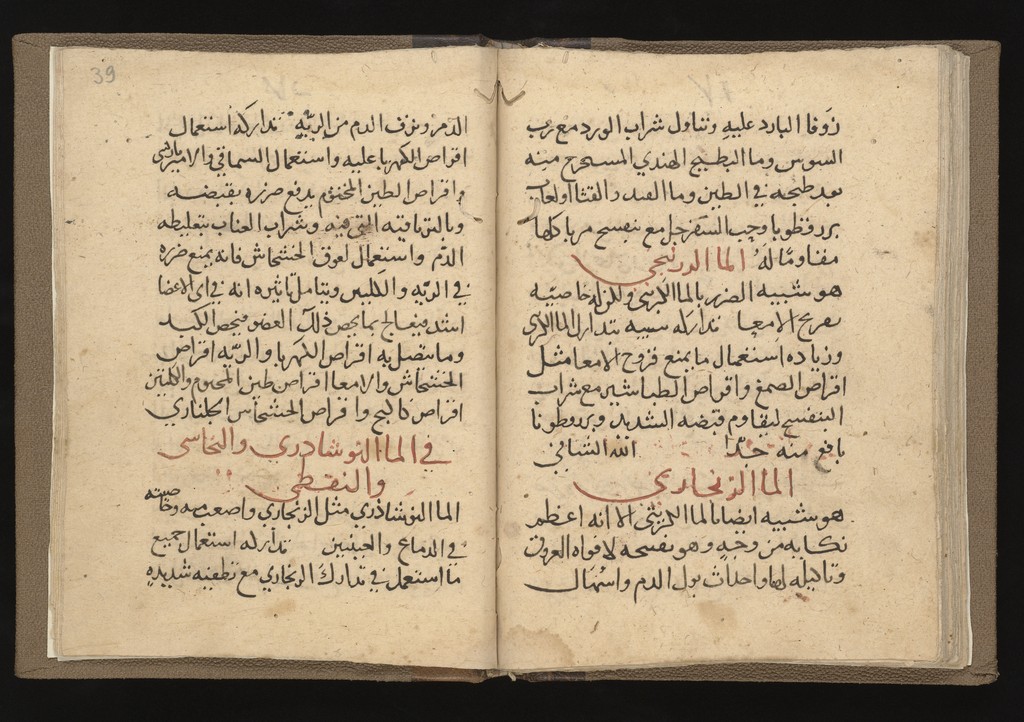 زوفا البارد عليه وتناول شراب الورد مع رب
السوس وما البطيخ الهندي المستخرج منه
بعد طبخه في الطين وما القند والقثا اولعاب
بزرقطونا وحب السفرجل مع بنفسج مربا كلها
مقاومًا له الما الزرنيخي
هو شبيه الضرر بالما الكبريتي وللزله خاصيه
تقريح الامعا تداركه شبيه بتدارك الما الكبريتي
وزياده استعمال ما يمنع قروح الامعا مثل
اقراص الصمغ واقراص الطباشير مع شراب
البنفسج ليقاوم قبضه الشديد وبزرقطونا
نافع منه جدًا الله الشافي
الما الزنجاري
هو شبيه ايضا بالما الكبريتي الا انه اعظم
نكايه من وجه وهو تفتيحه لافواه العروق
وتاكيله لها واحداث بول الدم واسهال
39
الدم ونزف الدم من الريّه تداركه استعمال
اقراص الكهربا عليه واستعمال السماقي والاميرباريسي
واقراص الطين المختوم يدفع ضرره بقبضه
وبالترياقيه التي فيه وشراب العناب بتغليظه
الدم واستعمال لعوق الخشخاش فانه يمنع ضرره
في الريّه والكليتين ويتامل تاثيره انه في اي الاعضا
اشد فيعالج بما يخص ذلك العضو فيخص الكبد
وما يتصل به اقراص الكهربا والريّه اقراص
الخشخاش والامعا اقراص طين المختوم والكليتين
اقراص كاكنج واقراص الخشخاش الجلناري
في الما النوشادري والنحاسي
والنفطي
الما النوشاذري مثل الزنجاري واصعب منه وخاصيته
في الدماغ والعينين تداركه استعمال جميع
ما استعمل في تدارك الزنجاري مع تطفيه شديده